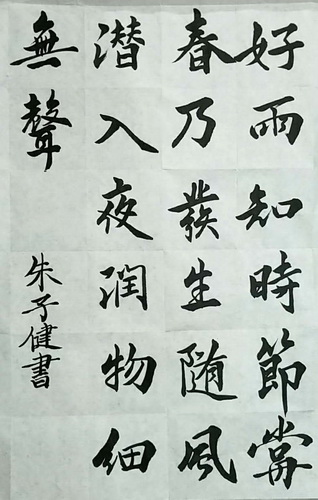 好雨知時節當
春乃發生随風
潜入夜润物细
無聲
朱子健書